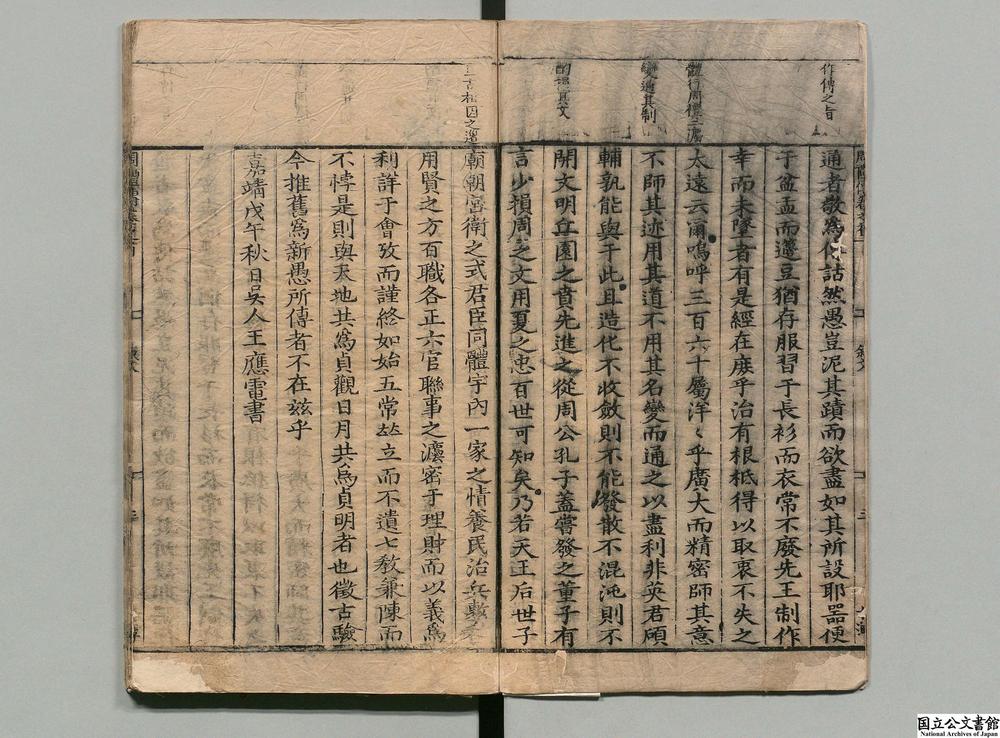 作傳之旨
通者敬爲傳詁然愚豈泥其蹟而欲盡如其所設耶器便
于盆盂而籩豆猶存服習于長衫而衣常不廢先王制作
幸而未墜者有是經在庻乎治有根柢得以取衷不失之
太遠云爾嗚呼三百六十屬洋〻乎廣大而精密師其意
變通其制
不師其迹用其道不用其名變而通之以盡利非英君碩
輔孰能與于此且造化不收斂則不能發散不混沌則不
開文明丘園之賁先進之從周公孔子蓋嘗發之董子有
言少損周之文用夏之忠百世可知矣乃若天王后世子
廟朝宮衛之式君臣同體宇內一家之情養民治兵
用賢之方百職各正六官聯事之灋密于理財而以義爲
利詳于會攷而謹終如始五常竝立而不遺七教兼陳而
不悖是則與天地共爲貞觀日月共爲貞明者也徵古驗
今推舊爲新愚所傳者不在兹乎
嘉靖戊午秋日吳人王應電書
国立公文書館
National Archives of Japan